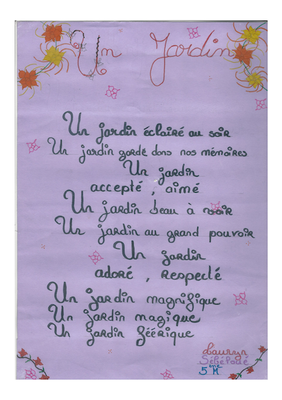 Un Jardin
Un jardin éclairé au soir
Un jardin gardé dans nos mémoires
Un jardin
accepté, aimé
Un jardin beau à voir
Un jardin au grand pouvoir
Un jardin
adoré, respecté
Un jardin magnifique
Un jardin magique
Un jardin féérique
Lauryn
5 K